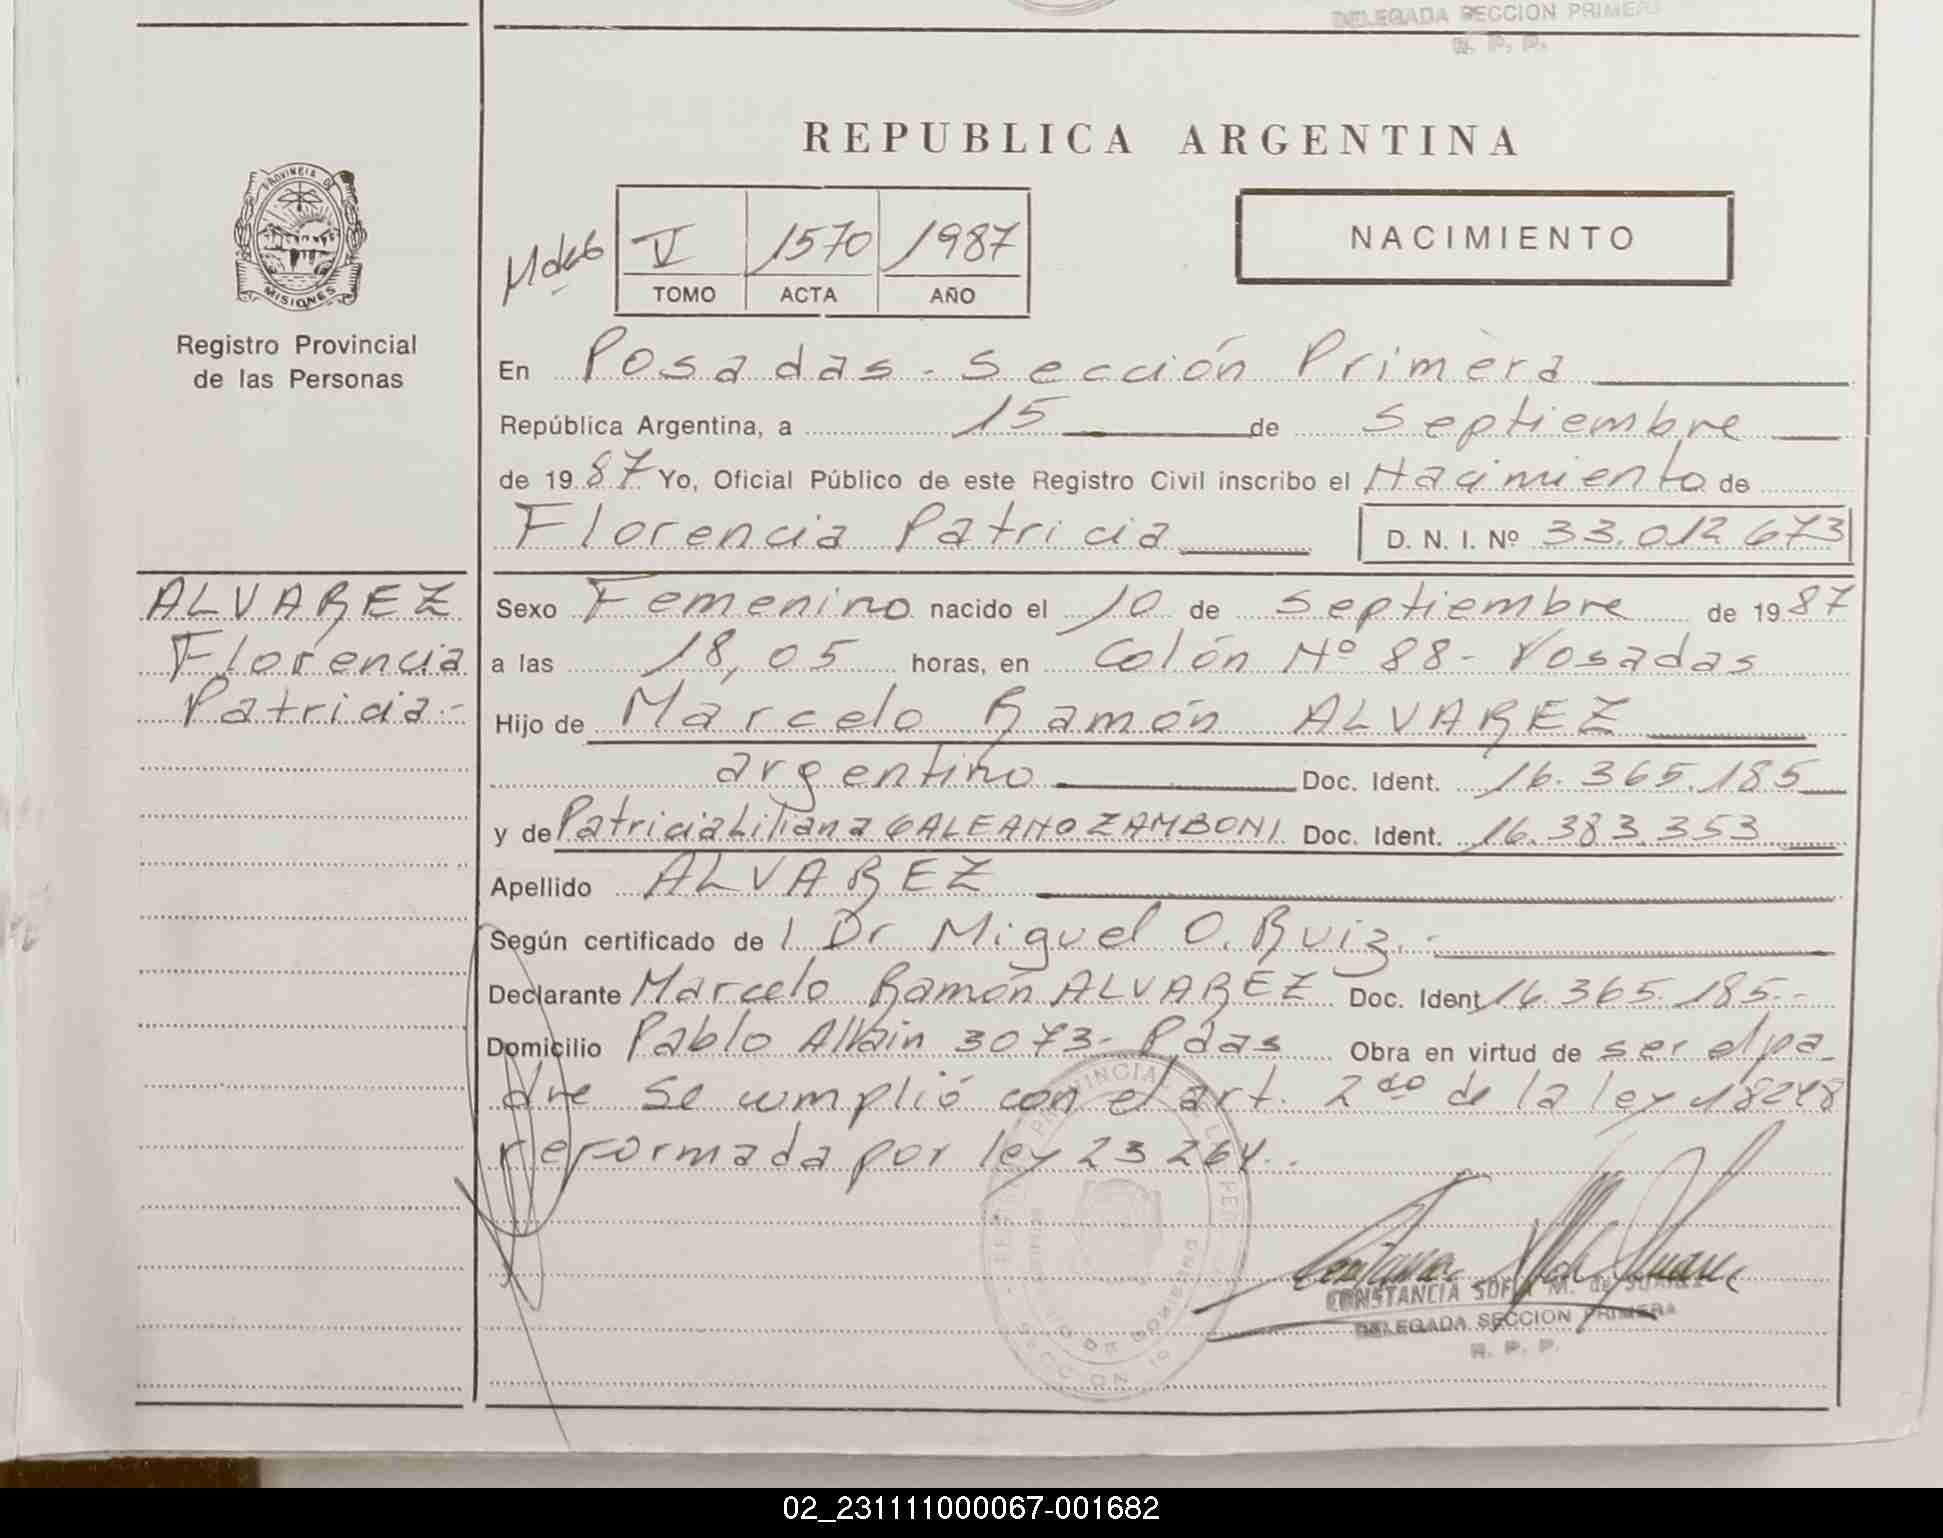 DELEGADA SECCION PRIMERA
R. P. P.
REPUBLICA ARGENTINA
PROVINCIA DE
MISIONES
Registro Provincial
de las Personas
V 1570 1987
TOMO ACTA AÑO
NACIMIENTO
En Posadas - Sección Primera
República Argentina, a 15 de Septiembre
de 1987 Yo, Oficial Público de este Registro Civil inscribo el Nacimiento de
Florencia Patricia D. N. I. Nº 33.012.673
ALVAREZ
Florencia
Patricia.-
Sexo Femenino nacido el 10 de Septiembre de 1987
a las 18,05 horas, en Colón Nº 88 - Posadas
Hijo de Marcelo Ramón ALVAREZ
argentino Doc. Ident. 16.365.185
y de Patricia Liliana GALEANO ZAMBONI Doc. Ident. 16.383.353
Apellido ALVAREZ
Según certificado de Dr Miguel O. Ruiz.-
Declarante Marcelo Ramón ALVAREZ Doc. Ident 16.365.185.-
Domicilio Pablo Allain 3073- Pdas Obra en virtud de ser el pa
dre Se cumplió con el art. 2do de la ley 18248
reformada por ley 23264..
CONSTANCIA SOFIA M. de SUAREZ
DELEGADA SECCION PRIMERA
R. P. P.
02_231111000067-001682